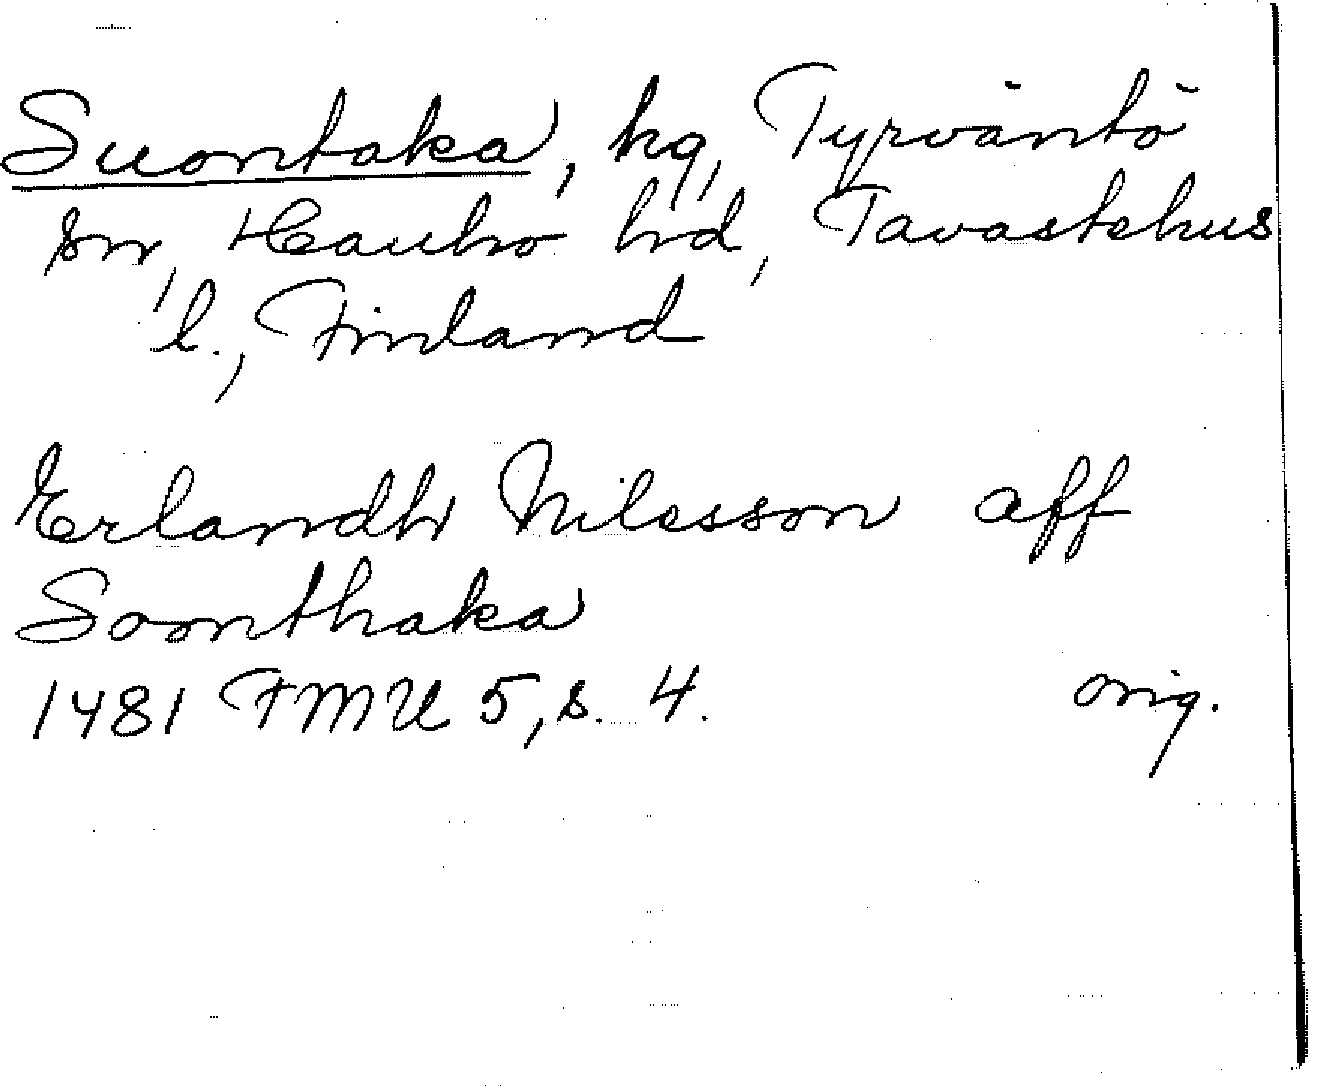 Suontaka, hg, Tyrväntö
sn, Hauho hd, Tavastehus
l., Finland
Erlandh Nilsson aff
Soonthaka
1481 FMU 5, s. 4. orig.